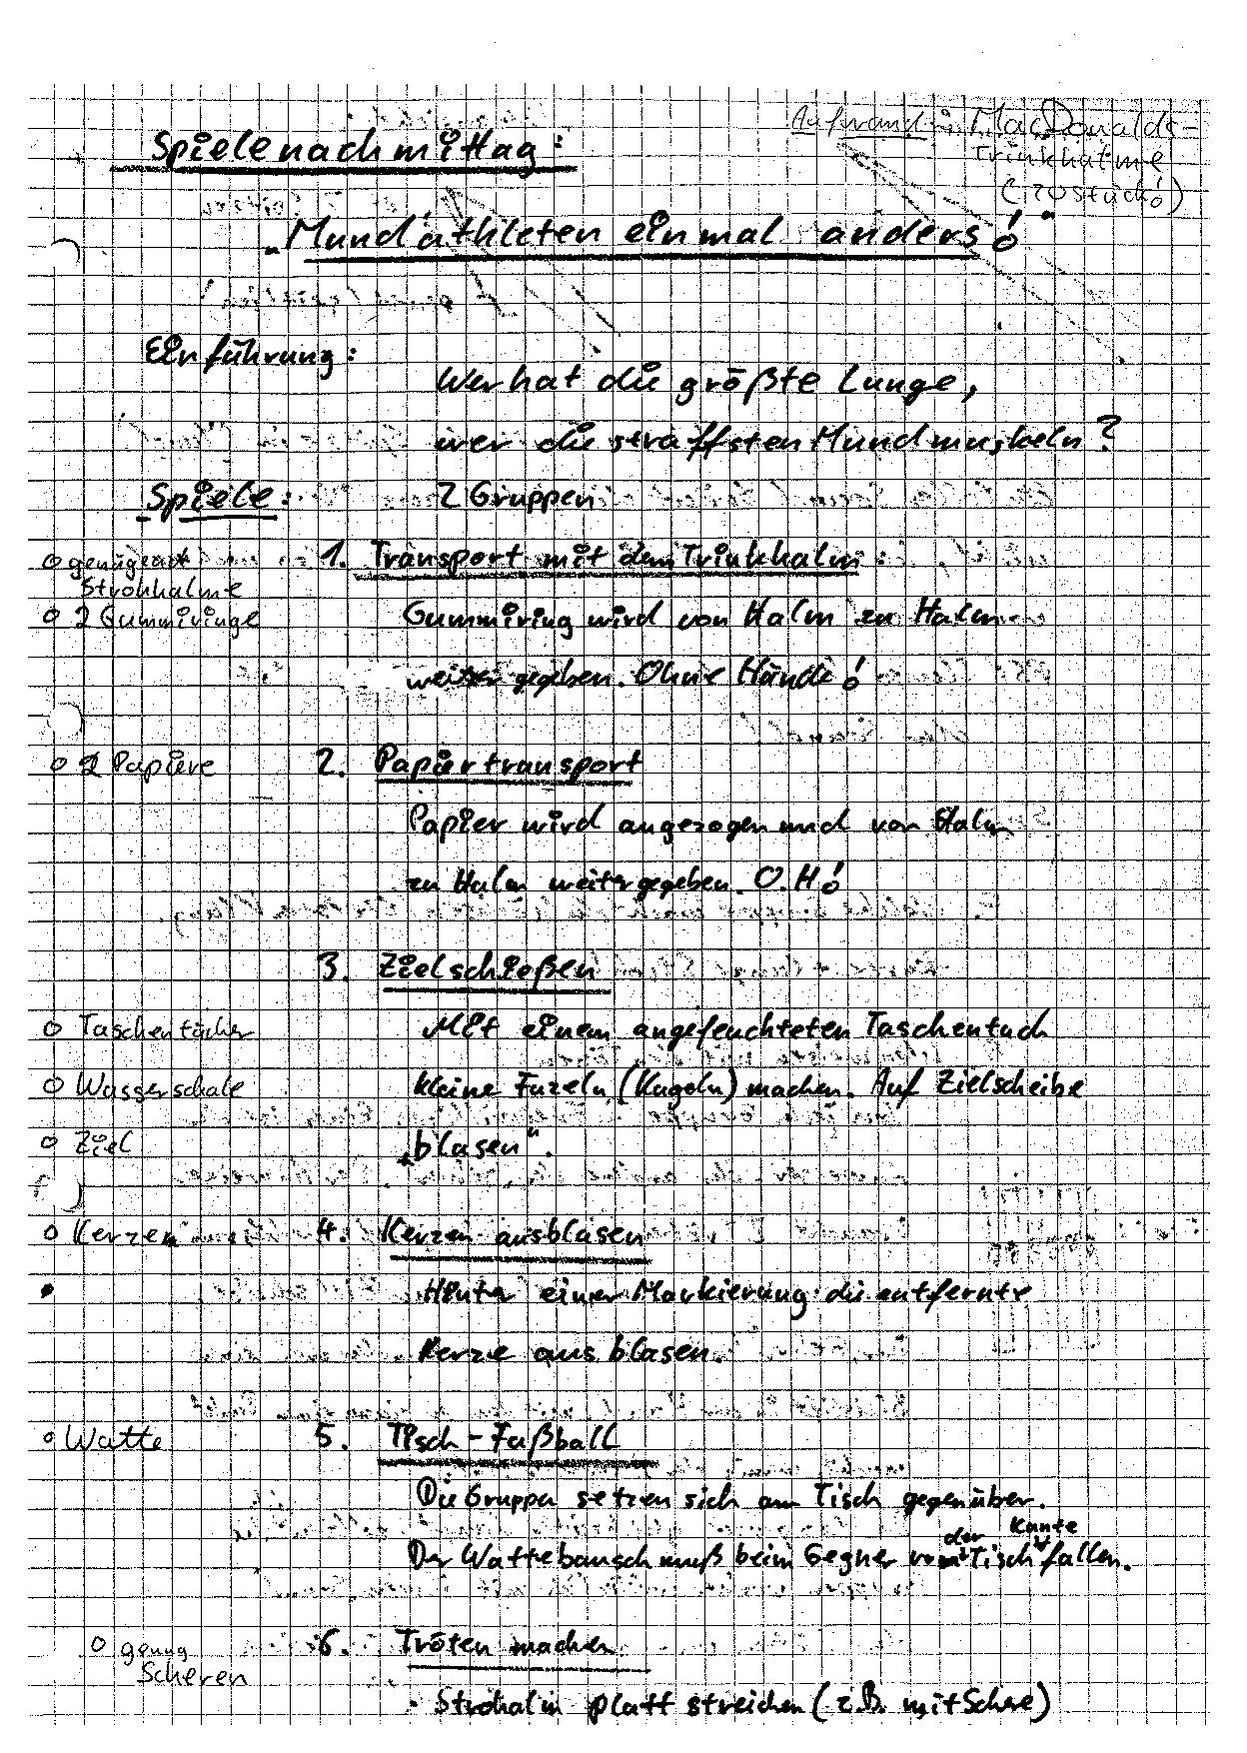 Aufwand: MacDonalds-
Trinkhalme
(120 Stück!)
Spielenachmittag:
„Mundathleten einmal anders!"
Einführung:
Wer hat die größte Lunge,
wer die straffsten Mundmuskeln?
Spiele: 2 Gruppen
o genügend 1. Transport mit dem Trinkhalm:
Strohhalme
o 2 Gummiringe Gummiring wird von Halm zu Halm
weitergegeben. Ohne Hände!
o 2 Papiere 2. Papiertransport
Papier wird angezogen und von Halm
zu Halm weitergegeben. O.H!
3. Zielschießen
o Taschentücher Mit einem angefeuchteten Taschentuch
o Wasserschale kleine Fuzeln (Kugeln) machen. Auf Zielscheibe
o Ziel „blasen".
o Kerzen 4. Kerzen ausblasen
Hinter einer Markierung die entfernte
Kerze ausblasen.
o Watte 5. Tisch-Fußball
Die Gruppen setzen sich am Tisch gegenüber.
Der Wattebausch muß beim Gegner von der Tischkante fallen.
o genug 6. Tröten machen
Scheren
- Strohalm platt streichen (z.B. mit Schere)